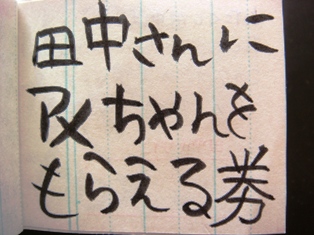 田中さんに
アメちゃんを
もらえる券